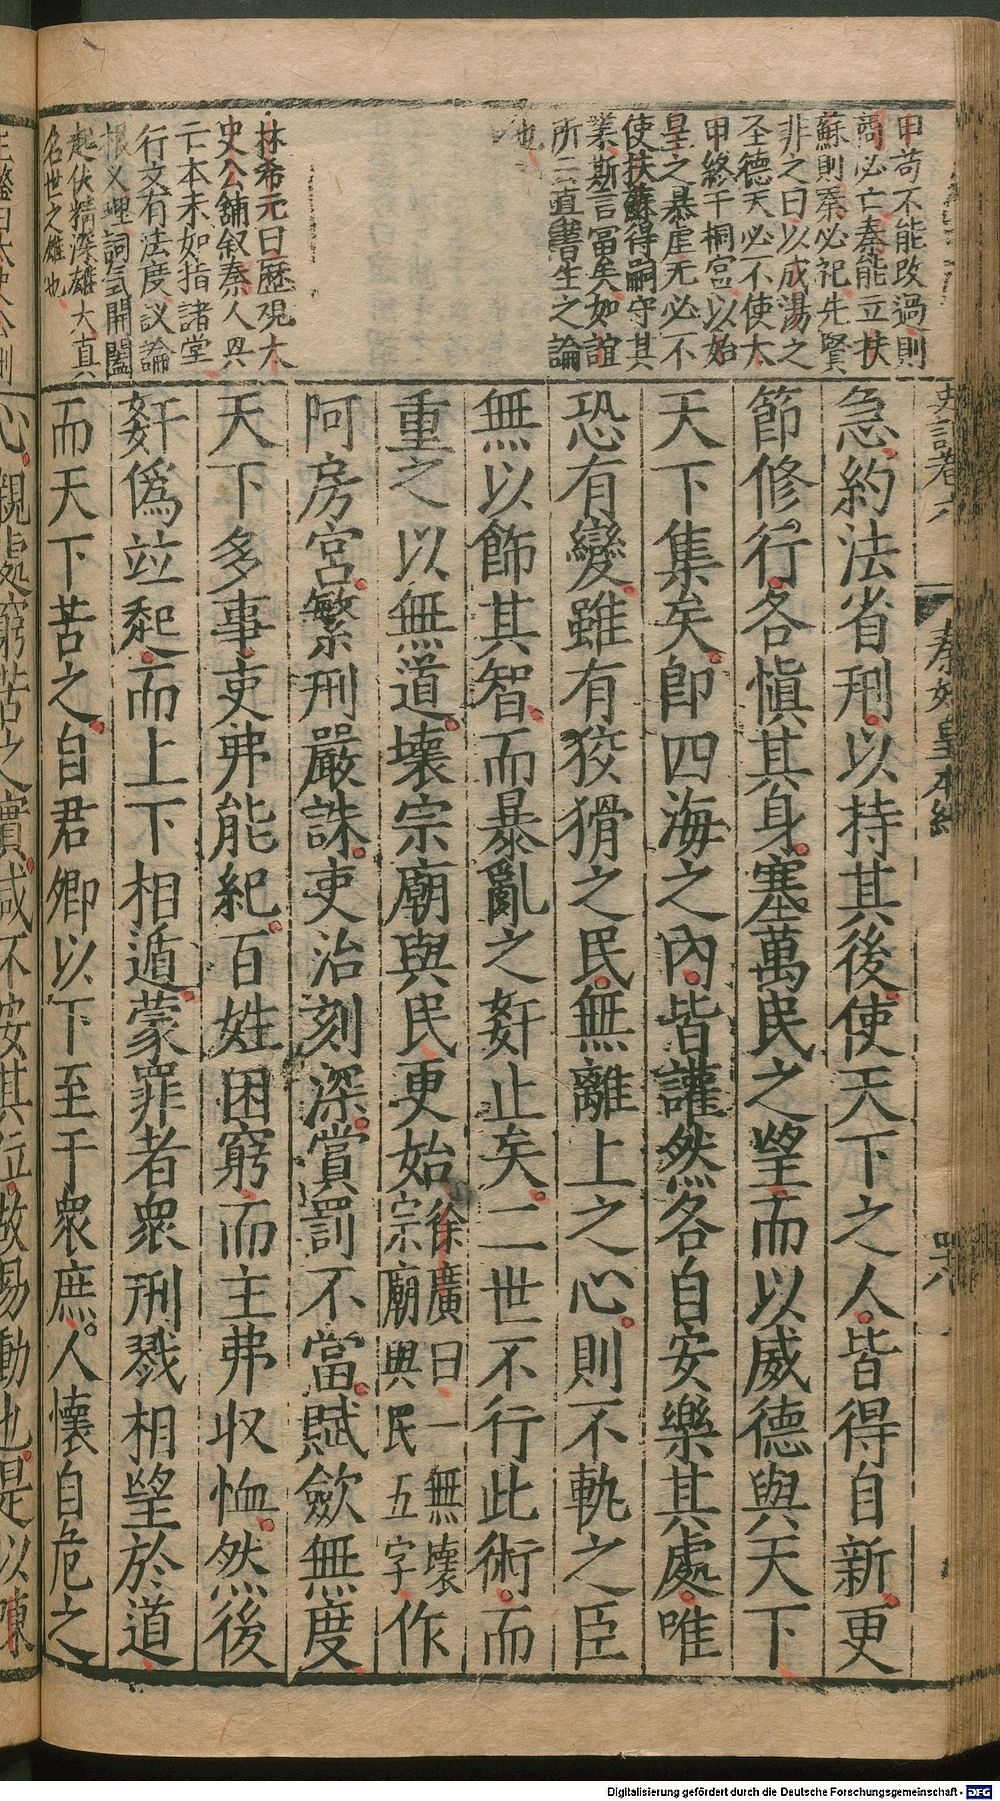 史記卷六
秦始皇本紀
四八
甲苟不能改過則
商必亡秦能立扶
蘇則秦必祀先賢
非之曰以成湯之
圣德天必不使太
甲終于桐宮以始
皇之暴虐无必不
使扶蘇得嗣守其
業斯言當矣如誼
所云直書生之論
也
林希元曰歷𮗚太
史公鋪叙秦人興
亡本末如指諸堂
行文有法度議論
根义理詞氣開闔
起伏精深雄大真
名世之雄也
急約法省刑以持其後使天下之人皆得自新更
節修行各慎其身塞萬民之望而以威德與天下
天下集矣即四海之內皆讙然各自安樂其處唯
恐有變雖有狡猾之民無離上之心則不軌之臣
無以飾其智而暴亂之姦止矣二世不行此術而
重之以無道壞宗廟與民更始徐廣曰一無壞宗廟與民五字作
阿房宮繁刑嚴誅吏治刻深賞罰不當賦歛無度
天下多事吏弗能紀百姓困窮而主弗收恤然後
姧僞竝起而上下相遁蒙罪者衆刑戮相望於道
而天下苦之自君卿以下至于衆庶人懷自危之
心親處窮苦之實咸不安其位故易動也是以陳
Digitalisierung gefördert durch die Deutsche Forschungsgemeinschaft - DFG